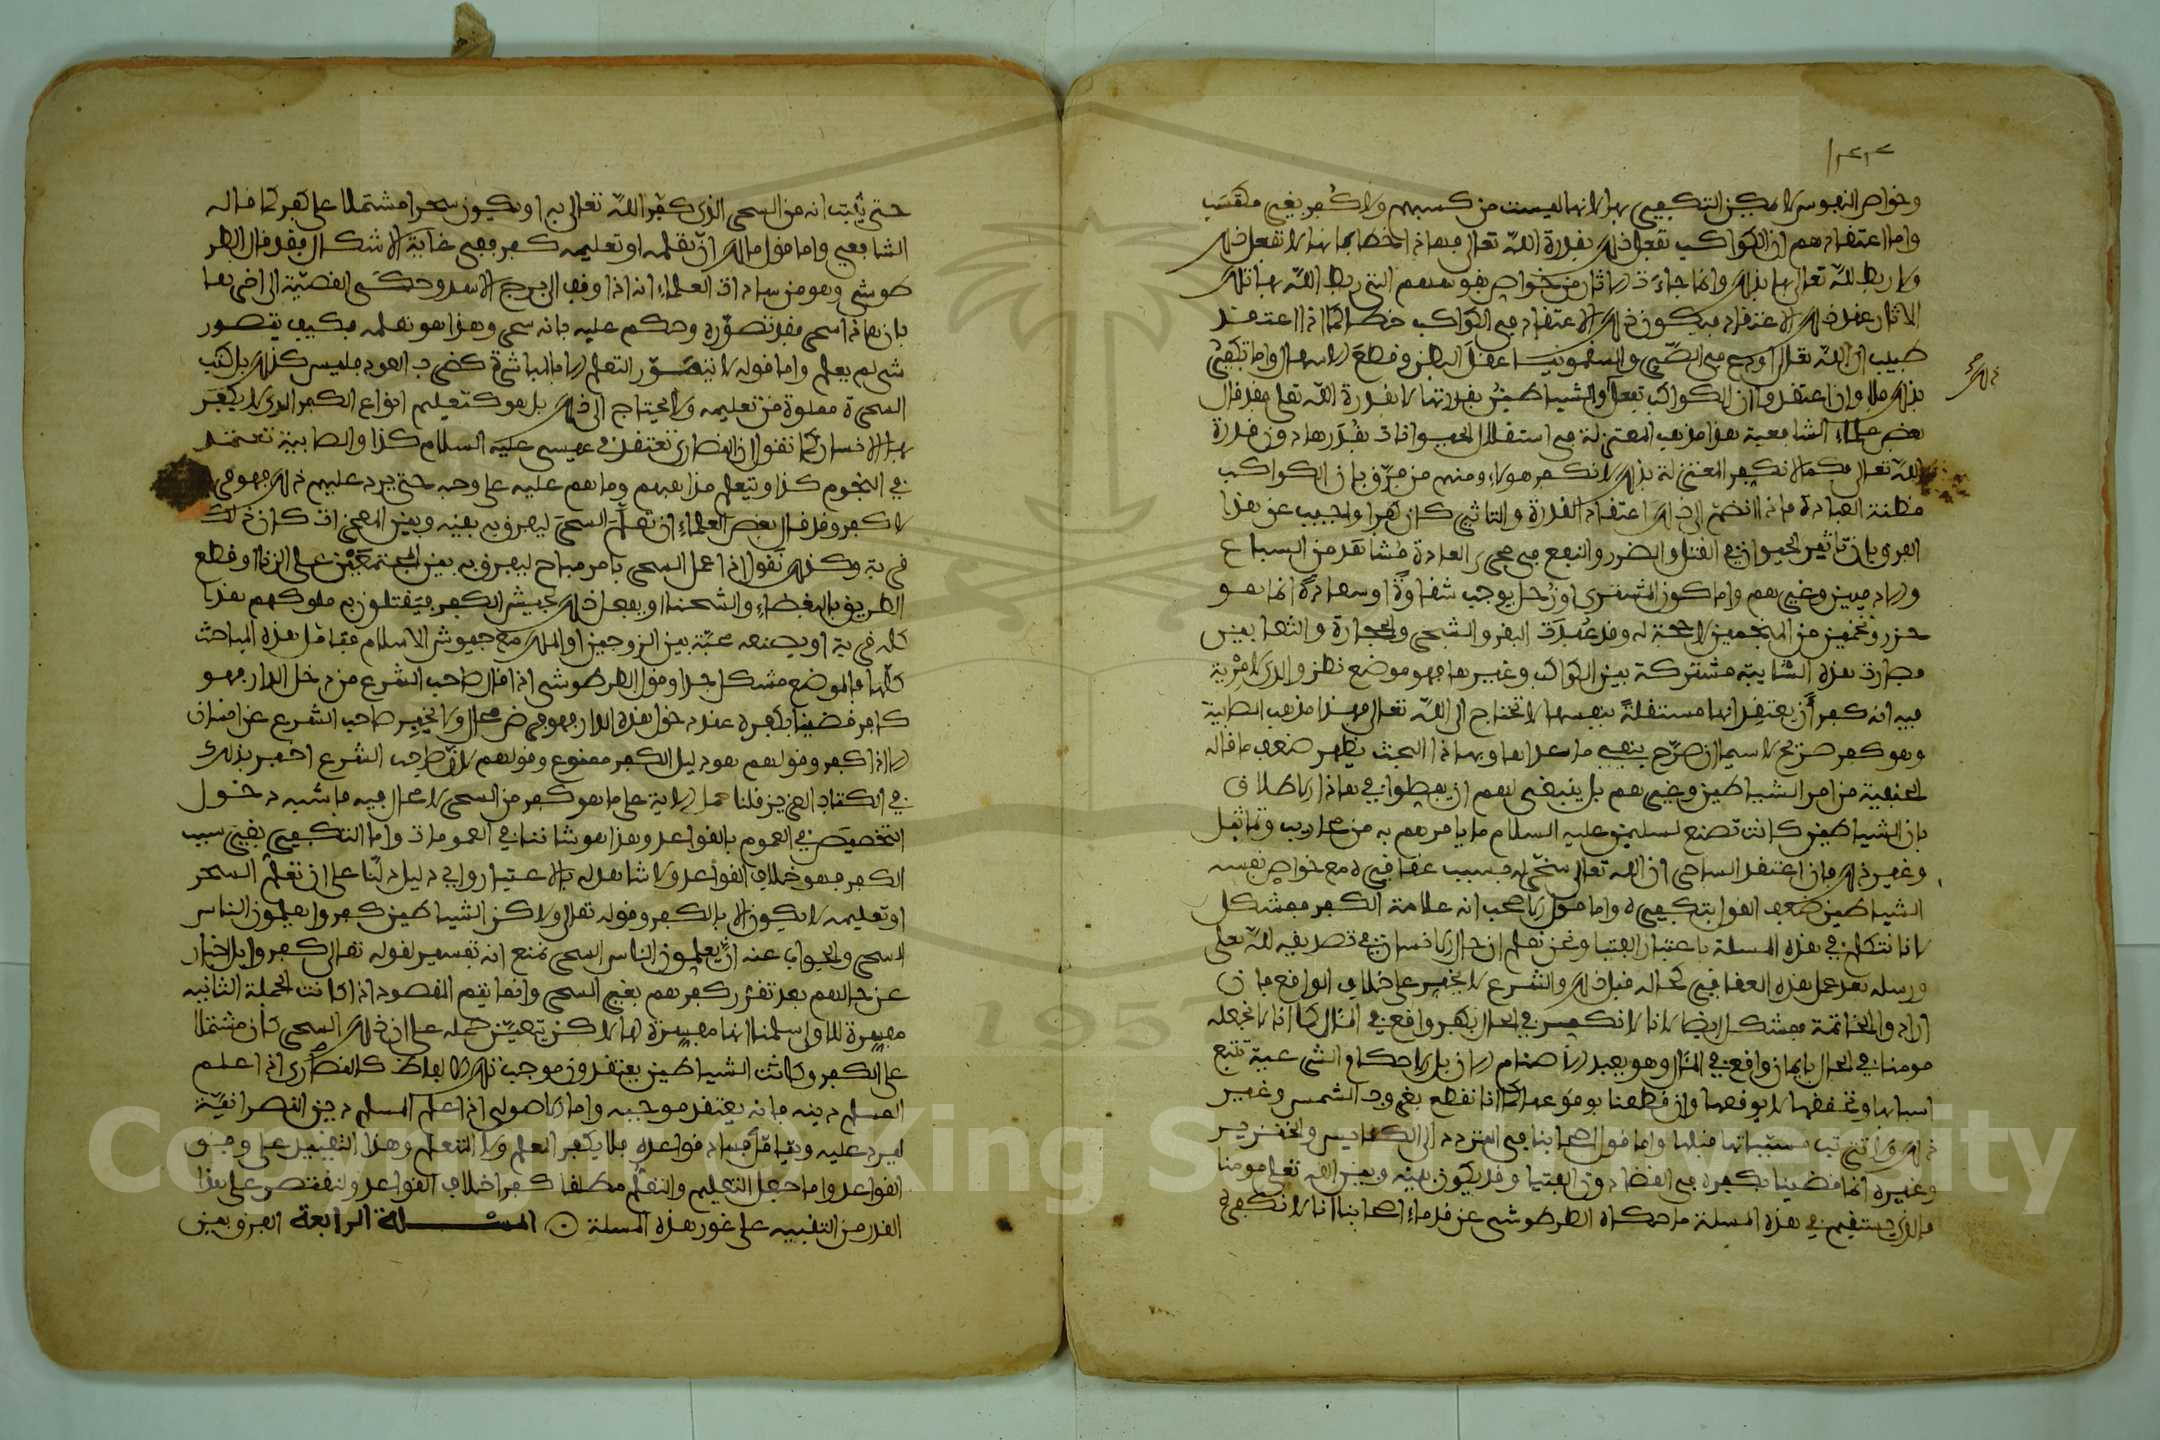 وخواص النفوس لا يمكن التكفير بها لانها ليست من كسبهم ولا كفر بغير مكتسب
واما اعتقادهم ان الكواكب تفعل ذلك بقدرة الله تعالى فهاذا خطا لانها لا تفعل ذلك
ولا ربط الله تعالى بها ذلك وانما جاءت الاثار من خواص نفوسهم التي ربط الله بها تلك
الاثار عند ذلك الاعتقاد فيكون ذلك الاعتقاد في الكواكب خطا كما اذا اعتقد
طبيب ان الله تعالى اودع في الصبر والسقمونيا عقل البطن وقطع الاسهال واما تكفيره
بذلك فلا وان اعتقدوا ان الكواكب تفعل والشياطين بقدرتها لا بقدرة الله تعلى فقد قال
بعض علماء الشافعية هذا مذهب المعتزلة في استقلال الحيوانات بقدرها دون قدرة
الله تعالى فكما لا نكفر المعتزلة بذلك لا نكفر هولاء ومنهم من فرق بان الكواكب
مظنة العبادة فاذا انضم الى ذلك اعتقاد القدرة والتاثير كان كفرا واجيب عن هذا
الفرق بان تاثير الحيوان في القتل والضرر والنفع في مجرى العادة مشاهد من السباع
والادميين وغيرهم واما كون المشتري او زحل يوجب شقاوة او سعادة انما هو
حزر وتخمين من المنجمين لا صحة له وقد عبدت البقر والشجر والحجارة والثعابين
فصارت هذه الشايبة مشتركة بين الكواكب وغيرها فهو موضع نظر والذي لا مرية
فيه انه كفر ان يعتقد انها مستقلة بنفسها لا تحتاج الى الله تعالى فهذا مذهب الصابية
وهو كفر صريح لا سيما ان صرح بنفي ما عداها وبهاذا البحث يظهر ضعف ما قاله
الحنفية من امر الشياطين وغيرهم بل ينبغي لهم ان يفصلوا في هاذا الاطلاق
بان الشياطين كانت تصنع لسليمن عليه السلام ما يامرهم به من محاريب وتماثيل
وغير ذلك فان اعتقد الساحر ان الله تعالى سخر له بسبب عقاقيره مع خواص نفسه
الشياطين ضعف القول بتكفيره واما قول الاصحاب انه علامة الكفر فمشكل
لانا نتكلم في هذه المسلة باعتبار الفتيا ونحن نعلم ان حال الانسان في تصديقه لله تعلى
ورسله بعد عمل هذه العقاقير كحاله قبل ذلك والشرع لا يخبر على خلاف الواقع فان
ارادوا الخاتمة فمشكل ايضا لانا لا نكفر في الحال بكفر واقع في المئال كما انا لا نجعله
مومنا في الحال بايمان واقع في المئال وهو يعبد الاصنام الان بل الاحكام الشرعية تتبع
اسبابها وتحققها لا توقعها وان قطعنا بوقوعها كما انا نقطع بغروب الشمس وغير
ذلك ولا نرتب مسبباتها قبلها واما قول اصحابنا في المتردد الى الكنايس والخنزير
وغيره انما قضينا بكفره في القضاء دون الفتيا وقد يكون بينه وبين الله تعلى مومنا
فالذي يستقيم في هذه المسلة ما حكاه الطرطوشي عن قدماء اصحابنا انا لا نكفره
حتى يثبت انه من السحر الذي كفر الله تعالى به او يكون سحرا مشتملا على كفر كما قاله
الشافعي واما قول مالك ان تعلمه او تعليمه كفر ففي غاية الاشكال فقد قال الطر
طوشي وهو من سادات العلماء انه اذا وقف الى برج الاسد وحكى القضية الى اخرها
بان هاذا سحر فقد تصوره وحكم عليه بانه سحر وهذا هو تعلمه فكيف يتصور
شي لم يعلم واما قوله لا يتصور التعلم الا بالمباشرة كضرب العود فليس كذلك بل كتب
السحرة مملوة من تعليمه ولا يحتاج الى ذلك بل هو كتعليم انواع الكفر الذي لا يكفر
بها الانسان كما تقول ان النصارى تعتقد في عيسى عليه السلام كذا والصابية تعتقد
في النجوم كذا ونتعلم مذاهبهم وما هم عليه على وجهه حتى نرد عليهم ذلك فهو قربة
لا كفر وقد قال بعض العلماء ان تعلم السحر ليفرق به بينه وبين المعجزات كان ذلك
قربة وكذلك نقول اذا عمل السحر بامر مباح ليفرق به بين المجتمعين على الزنا او قطع
الطريق بالبغضاء والشحنا او يفعل ذلك بجيش الكفر فيقتلون به ملوكهم فهذا
كله قربة او يصنعه محبة بين الزوجين او الملك مع جيوش الاسلام فتامل هذه المباحث
كلها فالموضع مشكل جدا وقول الطرطوشي اذا قال صاحب الشرع من دخل الدار فهو
كافر قضينا بكفره عند دخول هذه الدار فهو فرض محال ولا يخبر صاحب الشرع عن انسان
الا اذا كفر وقولهم هو دليل الكفر ممنوع وقولهم لان صاحب الشرع اخبر بذلك
في الكتاب العزيز قلنا حمل الاية على ما هو كفر من السحر لا محال فيه فاشبه دخول
التخصيص في العموم بالقواعد وهذا هو شاننا في العمومات واما التكفير بغير سبب
الكفر فهو خلاف القواعد ولا شاهد له بالاعتبار واي دليل دلنا على ان تعلم السحر
او تعليمه لا يكون الا بالكفر وقوله تعالى ولاكن الشياطين كفروا يعلمون الناس
السحر والجواب عنه ان يعلمون الناس السحر نمنع انه تفسير لقوله تعالى كفروا بل اخبار
عن حالهم بعد تقرر كفرهم بغير السحر وانما يتم المقصود اذا كانت الجملة الثانية
مفسرة للاولى سلمنا انها مفسرة لها لاكن يتعين حمله على ان ذلك السحر كان مشتملا
على الكفر وكانت الشياطين يعتقدون موجب تلك الالفاظ كالنصارى اذا علم
المسلم دينه فانه يعتقد موجبه واما الاصولي اذا علم المسلم دين النصرانية
ليرد عليه ويتامل فساد قواعده فلا يكفر المعلم ولا المتعلم وهذا التقييد على وفق
القواعد واما جعل التعليم والتعلم مطلقا كفرا خلاف القواعد ولنقتصر على هذا
القدر من التنبيه على غور هذه المسلة المسئلة الرابعة الفرق بين